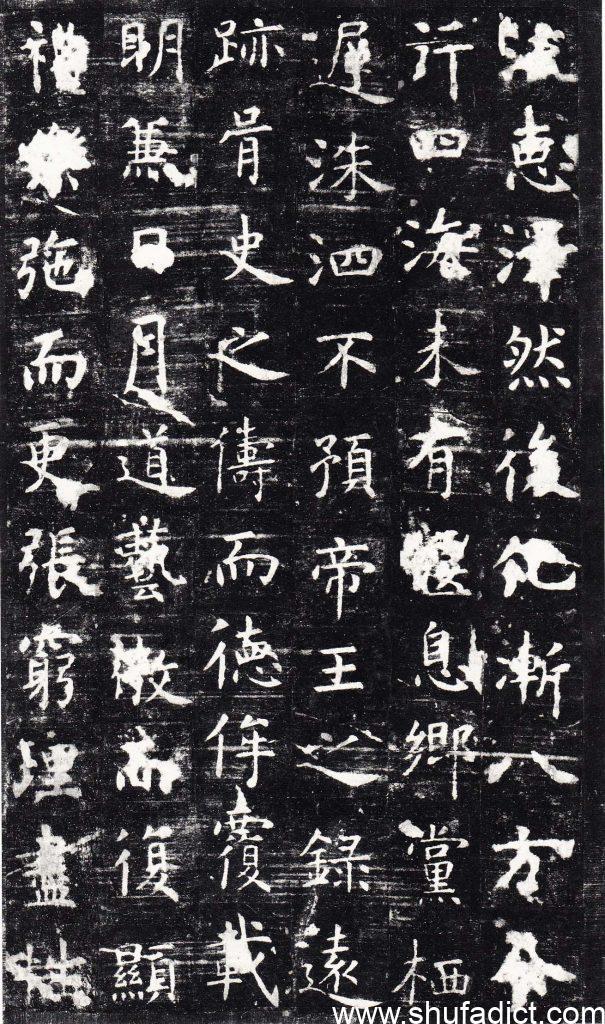 惠澤然後化漸八方令
行四海未有偃息鄉黨栖
遲洙泗不預帝王之錄遠
跡胥史之儔而德侔覆載
明兼日月道藝微而復顯
禮樂弛而更張窮理盡性
www.shufadict.com